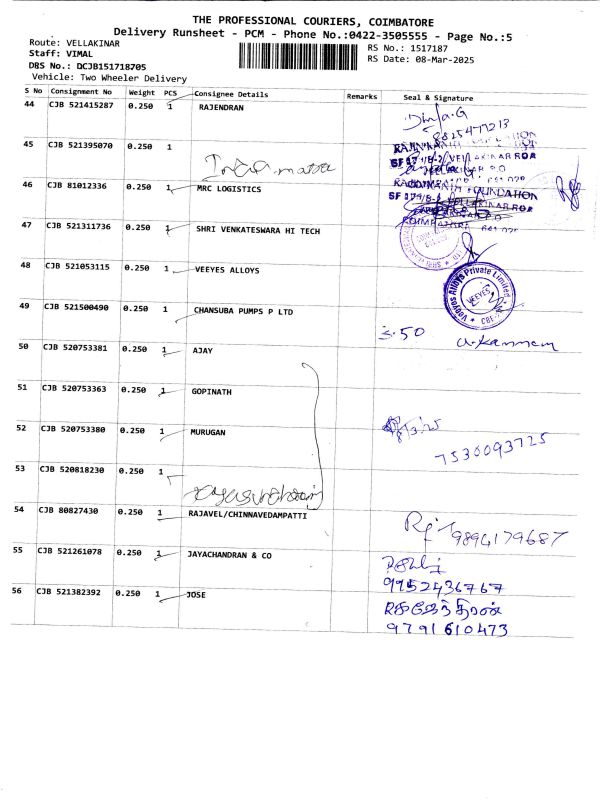 THE PROFESSIONAL COURIERS, COIMBATORE
Delivery Runsheet - PCM - Phone No.:0422-3505555 - Page No.:5
Route: VELLAKINAR
Staff: VIMAL
DBS No.: DCJB151718705
Vehicle: Two Wheeler Delivery
RS No.: 1517187
RS Date: 08-Mar-2025
S No Consignment No Weight PCS Consignee Details Remarks Seal & Signature
44 CJB 521415287 0.250 1 RAJENDRAN
8825477213
45 CJB 521395070 0.250 1
46 CJB 81012336 0.250 1 MRC LOGISTICS
FOUNDATION
47 CJB 521311736 0.250 1 SHRI VENKATESWARA HI TECH
48 CJB 521053115 0.250 1 VEEYES ALLOYS
Veeyes Alloys Private Limited
VEEYES
49 CJB 521500490 0.250 1 CHANSUBA PUMPS P LTD
50 CJB 520753381 0.250 1 AJAY
51 CJB 520753363 0.250 1 GOPINATH
52 CJB 520753380 0.250 1 MURUGAN
7530093725
53 CJB 520818230 0.250 1
54 CJB 80827430 0.250 1 RAJAVEL/CHINNAVEDAMPATTI
9894179687
55 CJB 521261078 0.250 1 JAYACHANDRAN & CO
9952436767
56 CJB 521382392 0.250 1 JOSE
9791610473